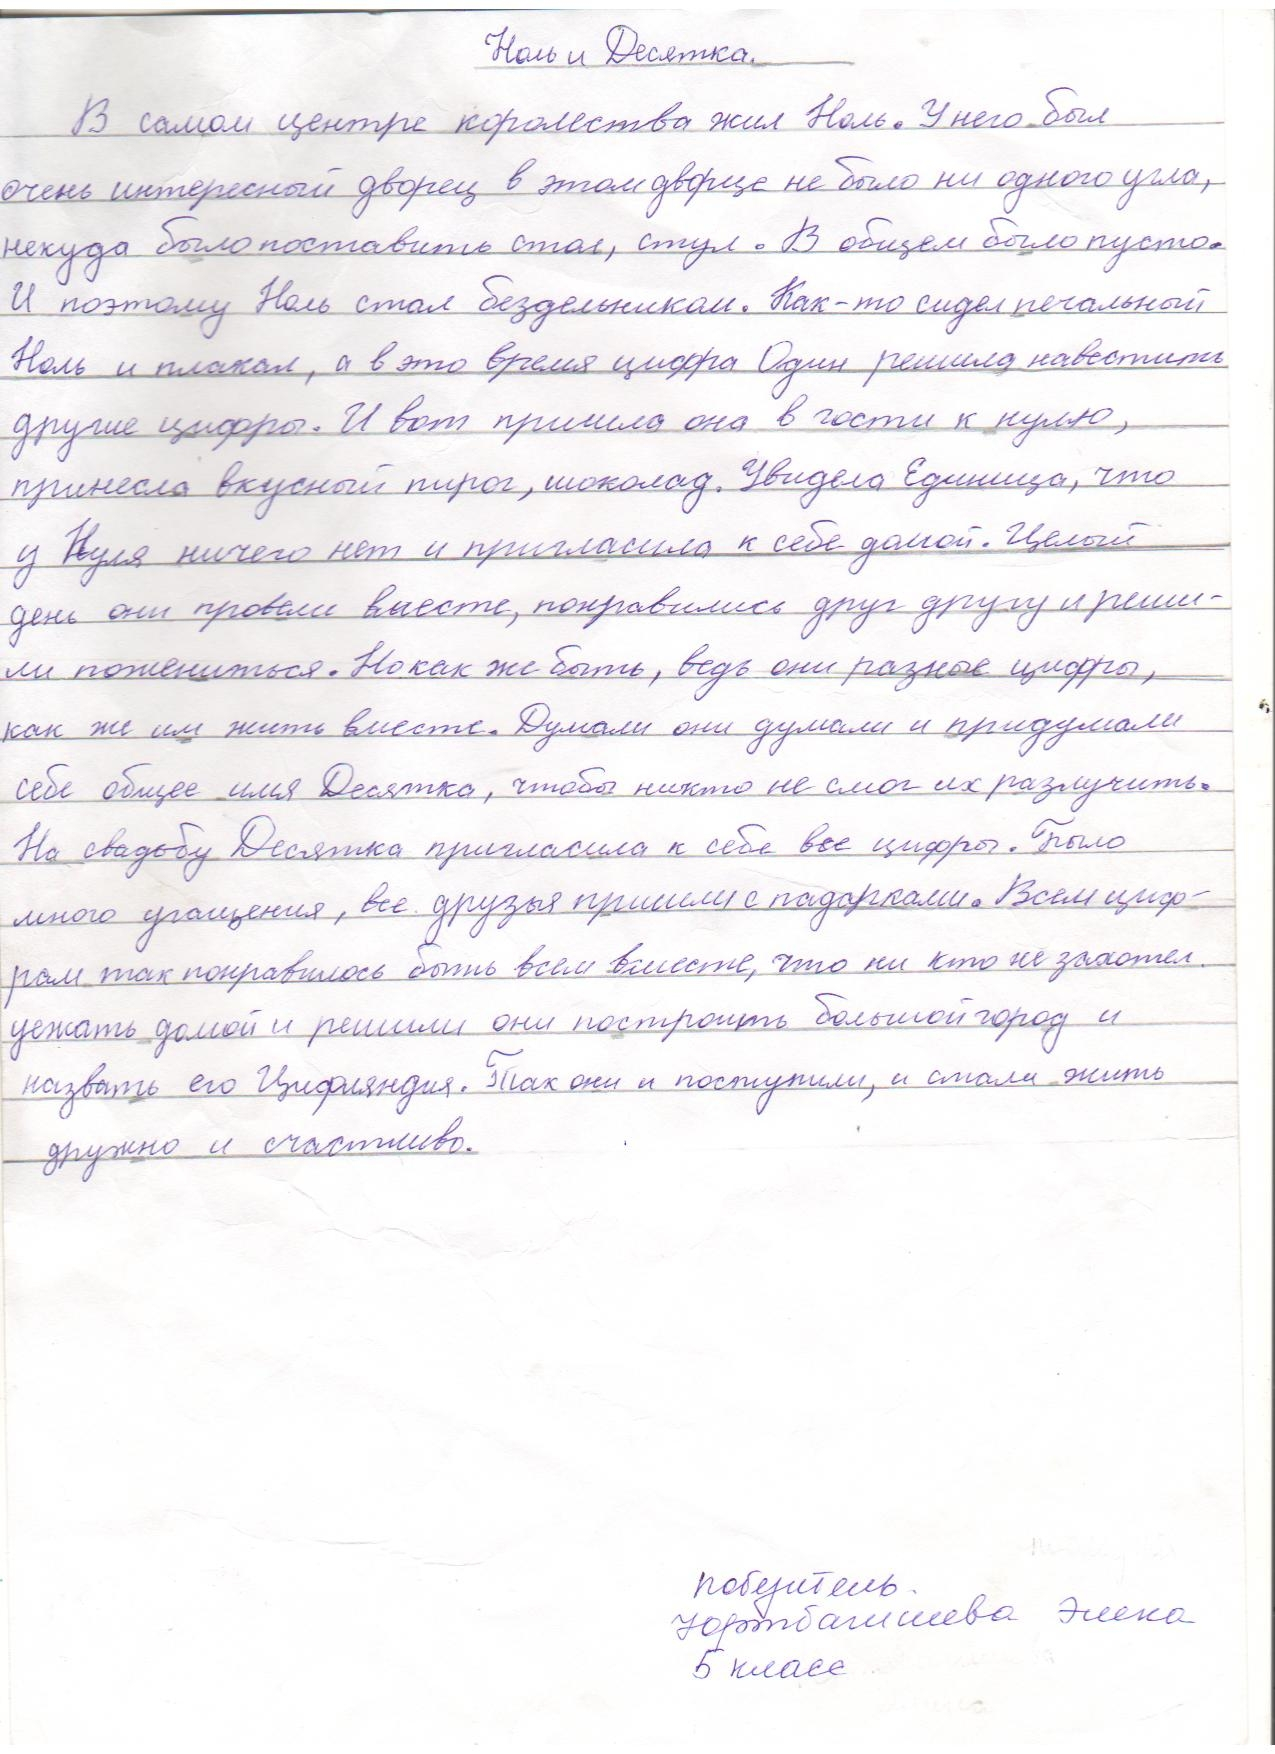 Ноль и Десятка.
В самом центре королества жил Ноль. У него был
очень интересный дворец в этом дворце не было ни одного угла,
некуда было поставить стол, стул. В общем было пусто.
И поэтому Ноль стал бездельником. Как-то сидел печальный
Ноль и плакал, а в это время цифра Один решила навестить
другие цифры. И вот пришла она в гости к нулю,
принесла вкусный пирог, шоколад. Увидела Единица, что
у Нуля ничего нет и пригласила к себе домой. Целый
день они провели вместе, понравились друг другу и реши-
ли пожениться. Но как же быть, ведь они разные цифры,
как же им жить вместе. Думали они думали и придумали
себе общее имя Десятка, чтобы никто не смог их разлучить.
На свадьбу Десятка пригласила к себе все цифры. Было
много угащения, все друзья пришли с падарками. Всем циф-
рам так понравилось быть всем вместе, что ни кто не захотел
уежать домой и решили они построить большой город и
назвать его Цифляндия. Так они и поступили, и стали жить
дружно и счастливо.
победитель.
Элека
5 класс